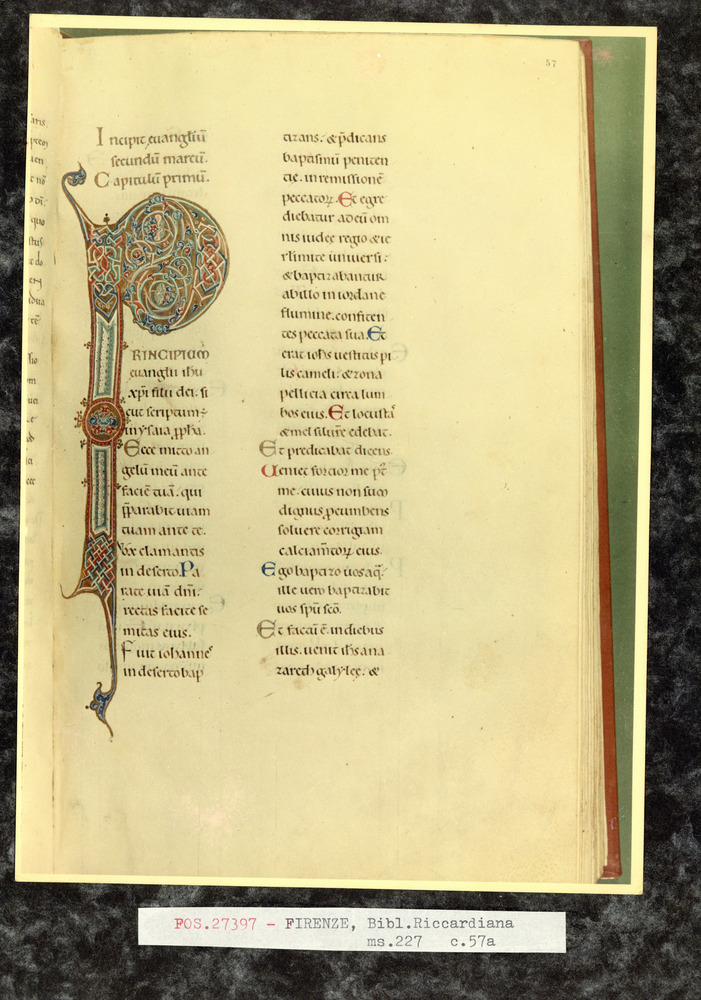 57
Incipit euangliū
secundū marcū.
Capitulū primū.
PRINCIPIUM
euanglii ihu
xp̄i filii dei. si
cut scriptum ÷
in ysaia ꝓpha.
Ecce mitto an
gelū meū ante
faciē tuā. qui
p̄parabit uiam
tuam ante te.
Vox clamantis
in deserto. Pa
rate uiā dn̄i.
rectas facite se
mitas eius.
Fuit iohannes
in deserto bap
tizans. & p̄dicans
baptismū peniten
tie. in remissionē
peccatoꝝ. Et egre
diebatur ad eū om
nis iudee regio & ie
rlimite uniuersi.
& baptizabantur
ab illo in iordane
flumine. confiten
tes peccata sua. Et
erat iohs uestitus pi
lis cameli. & zona
pellicia circa lum
bos eius. Et locustā
& mel siluestre edebat.
Et predicabat dicens.
Ueniet fortior me pt
me. cuius non sum
dignus procumbens
soluere corrigiam
calciamtoꝝ eius.
Ego baptizo uos aq̄.
ille uero baptizabit
uos spū scō.
Et factū ē. in diebus
illis. uenit ihs a na
zareth galylee. &
FOS.27397 - FIRENZE, Bibl.Riccardiana
ms.227 c.57a